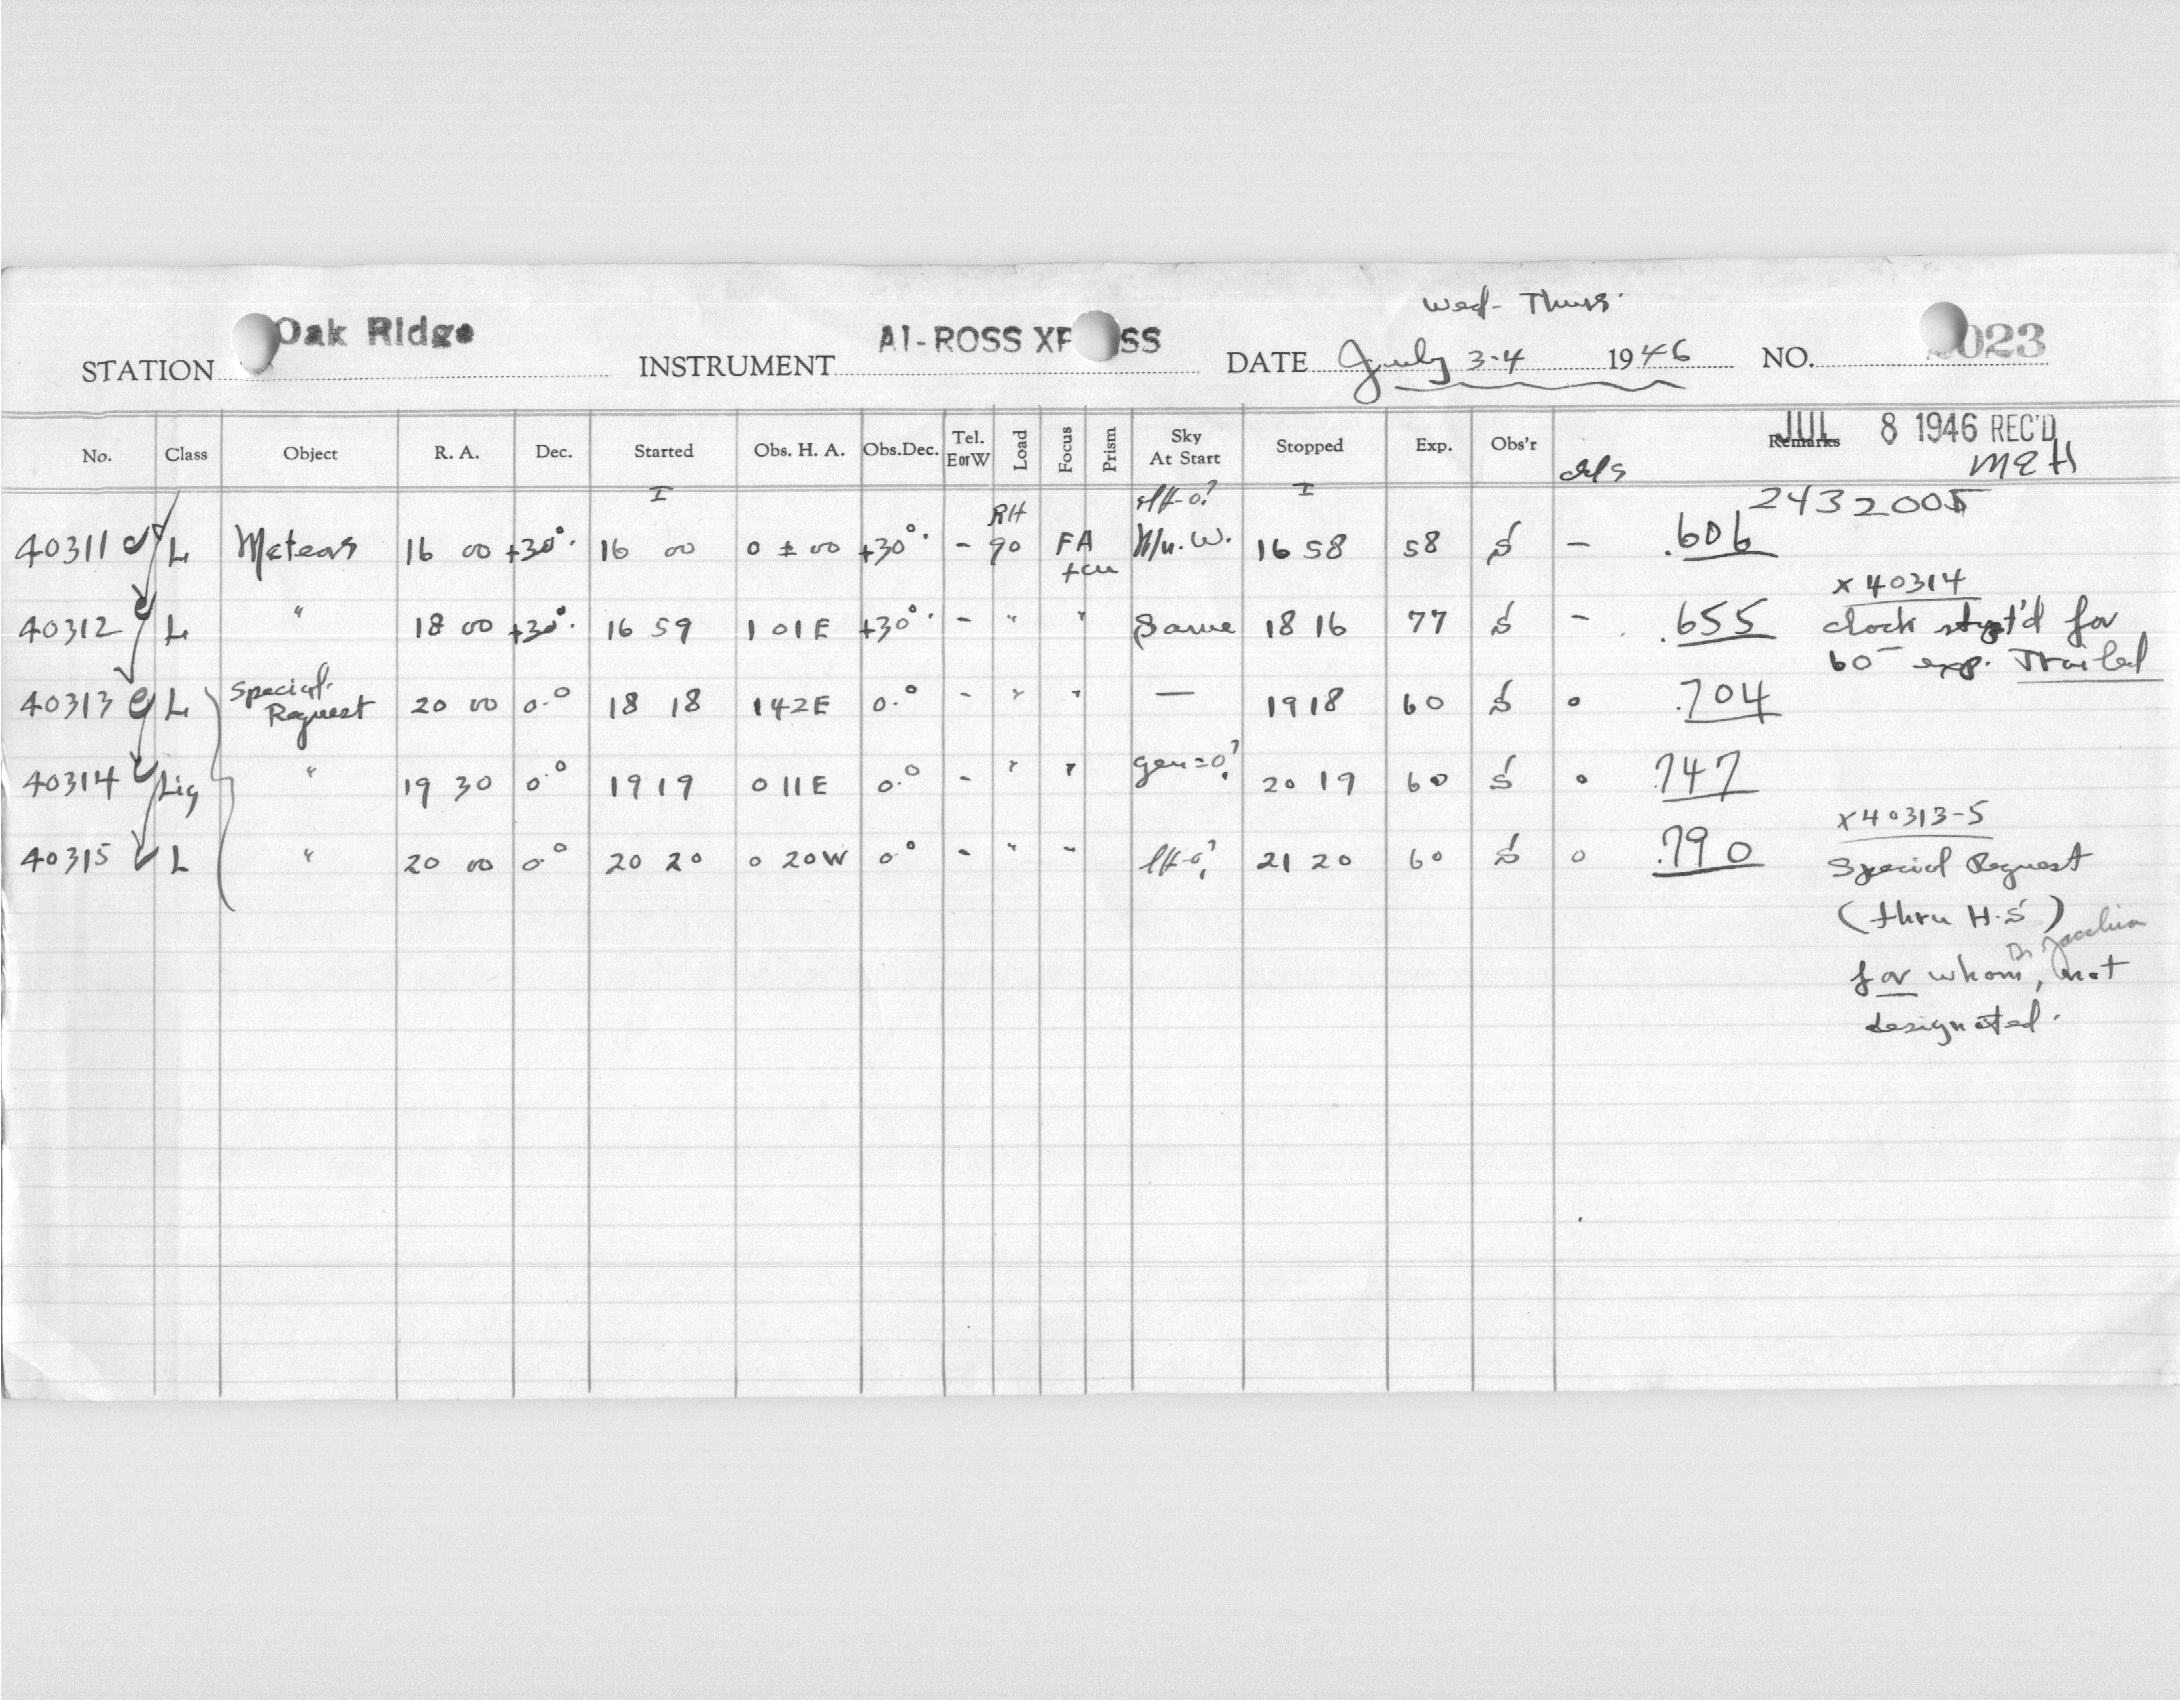 Wed - Thurs.
STATION Oak Ridge INSTRUMENT AI-ROSS XP SS DATE July 3-4 1946 NO. 023
JUL 8 1946 REC'D
No. Class Object R. A. Dec. Started Obs. H. A. Obs.Dec. Tel. E or W Load Focus Prism Sky At Start Stopped Exp. Obs'r Remarks
MEH
2432005
40311 L Meteors 16 00 +30°. 16 00 0 ± 00 +30°. - RH 90 FA 16 58 58 S - .606
x 40314
40312 L " 18 00 +30°. 16 59 1 01E +30°. - " " Same 18 16 77 S - .655 clock stop't'd for
60 - exp. Trailed
40313 L Special Request 20 00 0.° 18 18 1 42E 0.° - " " — 19 18 60 S o .704
40314 Lig " 19 30 0.° 19 19 0 11E 0.° - " " gen=0? 20 19 60 S o .747
x 40313-5
40315 L " 20 00 0.° 20 20 0 20W 0.° - " " 21 20 60 S o .790
Special Request
(thru H.S)
Dr Jacchia
for whom, not
designated.